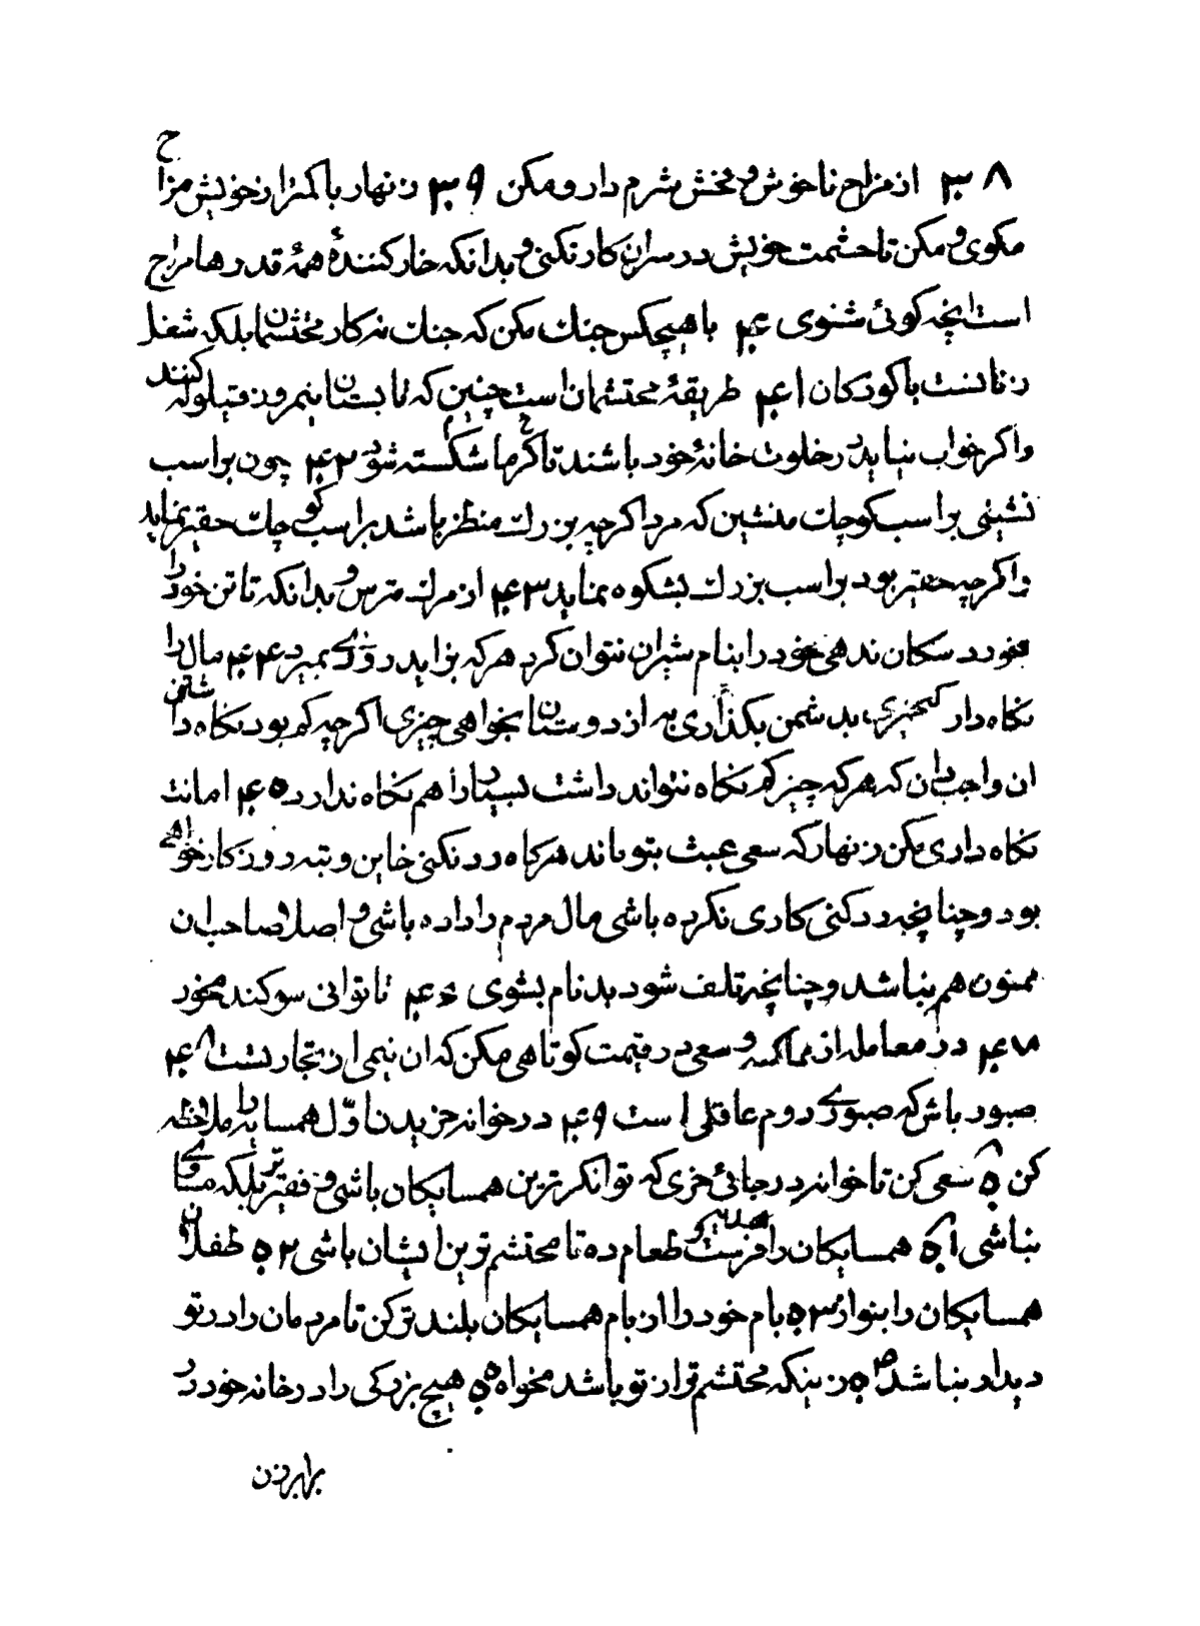 ۳۸ از مزاح ناخوش و فحش شرم دار و مکن ۳۹ زنهار با کمتر از خویش مزاح
مکوی و مکن تا حشمت خویش در سران کار نکنی و بدانکه خار کنندهٔ همهٔ قدرها مزاح
است انچه کوئی شنوی ۴۰ با هیچکس جنک مکن که جنک نه کار محتشمانست بلکه شغل
زنانست یا کودکان ۴۱ طریقهٔ محتشمان است چنین که تابستان نیمروز قیلوله کنند
و اکر خواب نیاید در خلوت خانهٔ خود باشند تا کرما شکسته شود ۴۲ چون بر اسب
نشینی بر اسب کوچک منشین که مرد اکر چه بزرک منظر باشد بر اسب کوچک حقیر نماید
و اکر چه حقیر بود بر اسب بزرک بشکوه نماید ۴۳ از مرک مترس و بدانکه تا تن خود را
بخورد سکان ندهی خود را بنام شیران نتوان کرد هر که بزاید روزی بمیرد ۴۴ مال را
نکاه دار که چیزی بدشمن بکذاری به از دوستان بخواهی چیزی اکر چه کم بود نکاه داشتن
ان واجب دان که هر که چیز کم نکاه نتواند داشت بسیار را هم نکاه ندارد ۴۵ امانت
نکاه داری مکن زنهار که سعی عبث بتو ماند هرکاه رد نکنی خاین و تبه روزکار خواهی
بود و چنانچه رد کنی کاری نکرده باشی مال مردم را داده باشی و اصلا صاحب ان
ممنون هم نباشد و چنانچه تلف شود بدنام بشوی ۴۶ تا توانی سوکند مخور
۴۷ در معامله از مماکسه و سعی در قیمت کوتاهی مکن که ان نیمی از تجارتست ۴۸
صبور باش که صبوری دوم عاقلی است ۴۹ در خوانه خریدن اول همسایه را ملاحظه
کن ۵۰ سعی کن تا خوانه در جائی خری که توانکر ترین همسایکان باشی و فقیرتر بلکه مساوی
نباشی ۵۱ همسایکان را هدایه کو فرست طعام ده تا محتشم ترین ایشان باشی ۵۲ طفلان
همسایکان را بنواز ۵۳ بام خود را از بام همسایکان بلند تر کن تا مردمان را در تو
دیدار نباشد ۵۴ زنیکه محتشم تر از تو باشد مخواه ۵۵ هیچ بزرکی را در خانه خود در
برابر زن